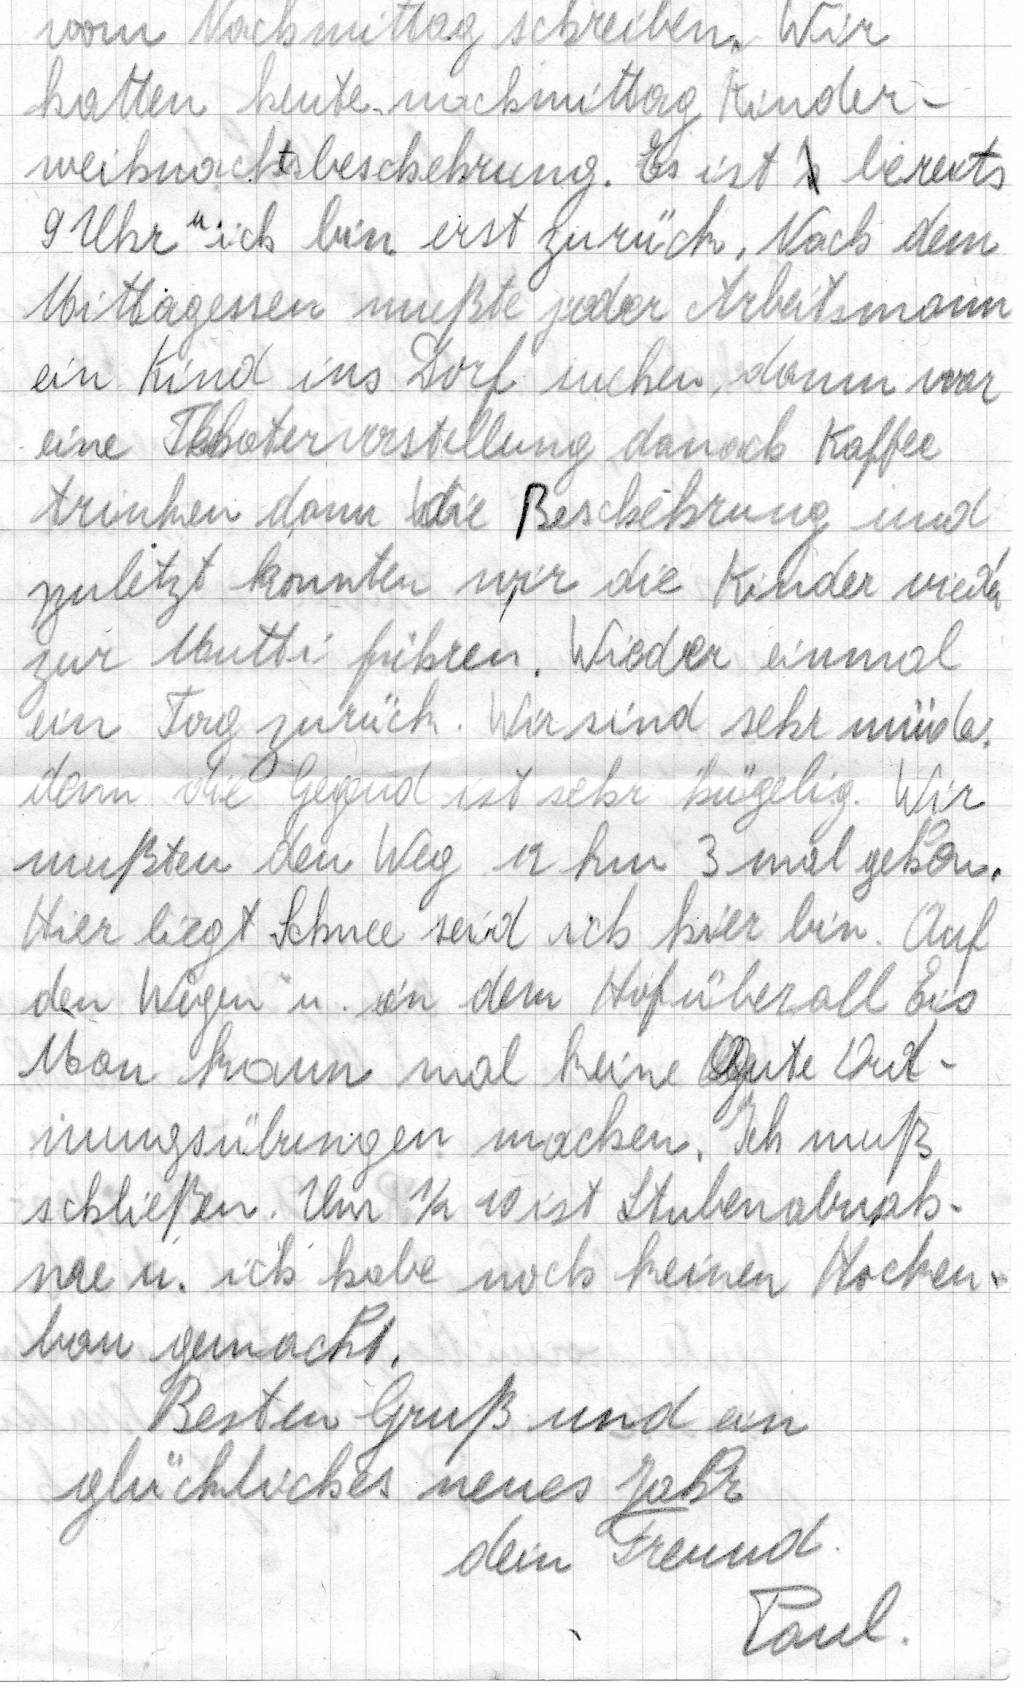 vom Nachmittag schreiben. Wir
hatten heute nachmittag Kinder-
weihnachtsbeschehrung. Es ist bereits
9 Uhr u ich bin erst zurück. Nach dem
Mittagessen mußte jeder Arbeitsmann
ein Kind ins Dorf suchen, dann war
eine Theatervorstellung danach Kaffee
trinken dann die Beschehrung und
zuletzt konnten wir die Kinder wieder
zur Mutti führen. Wieder einmal
ein Tag zurück. Wir sind sehr müde.
denn die Gegend ist sehr hügelig. Wir
mußten den Weg 12 km 3 mal gehen.
Hier liegt Schnee seid ich hier bin. Auf
den Wegen u. in dem Hof überall Eis
Man kann mal keine gute Ord-
nungsübungen machen. Ich muß
schließen. Um 1/2 10 ist Stubenabnah-
me u. ich habe noch keinen Hocken-
bau gemacht.
Besten Gruß und ein
glückliches neues Jahr
dein Freund.
Paul.